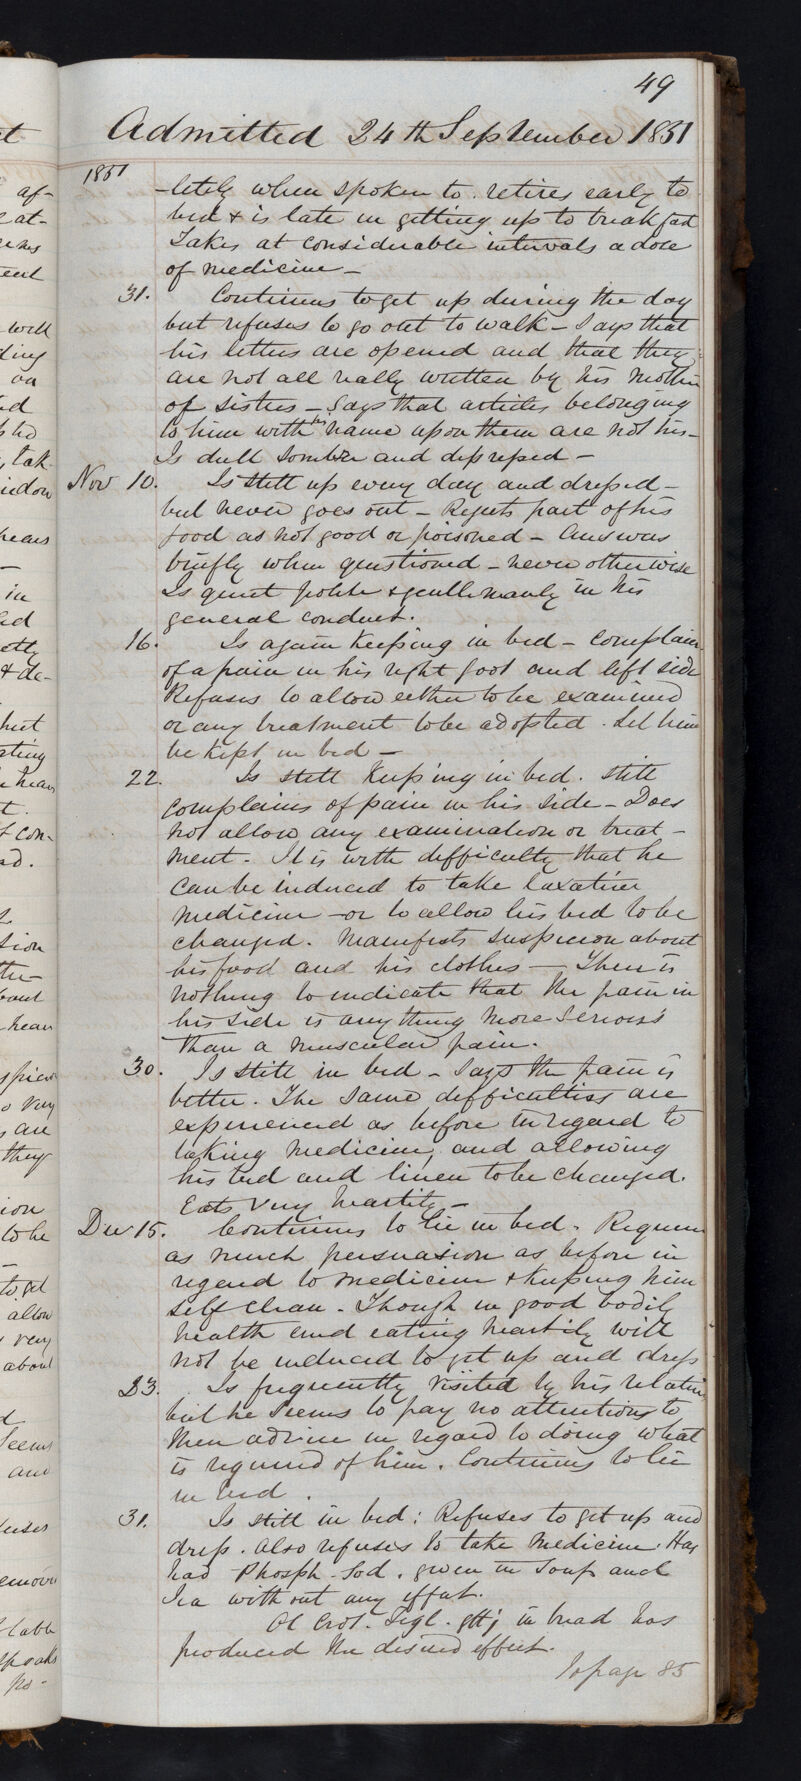 49
Admitted 24th September 1851
1851
-letely when spoken to. retires early to
bed & is late in getting up to breakfast
Takes at considerable intervals a dose
of medicine –
31. Continues to get up during the day
but refuses to go out to walk – Says that
his letters are opened and that they
are not all really written by his Mother
of Sisters – Says that articles belonging
to him with his name upon them are not his –
Is dull sombre and depressed –
Nov 10. Is still up every day and dressed –
but never goes out – Rejects part of his
food as not good or poisoned – Answers
briefly when questioned – never otherwise
Is quiet polite & gentlemanly in his
general conduct.
16. Is again Keeping in bed – Complains
of a pain in his right foot and left side
Refuses to allow either to be examined
or any treatment to be adopted. Let him
be Kept in bed –
22. Is still Keeping in bed. still
complains of pain in his side – Does
not allow any examination or treat-
ment. It is with difficulty that he
can be induced to take laxative
medicine – or to allow his bed to be
changed. Manifests suspicion about
his food and his clothes – There is
nothing to indicate that the pain in
his side is anything more serious
than a muscular pain.
30. Is still in bed – Says the pain is
better. The same difficulties are
experienced as before in regard to
taking medicine, and allowing
his bed and linen to be changed.
Eats very heartily –
Dec 15. Continues to lie in bed. Requires
as much persuasion as before in
regard to medicine & Keeping him
self clean. Though in good bodily
health and eating heartily will
not be induced to get up and dress
23. Is frequently visited by his relations
but he seems to pay no attention to
their advice in regard to doing what
is required of him. Continues to lie
in bed.
31. Is still in bed: Refuses to get up and
dress. Also refuses to take medicine. Has
had Phosph. Sod. given in Soup and
Tea without any effect.
Ol Crot. Tigl. gtt j in bread has
produced the desired effect.
To page 85